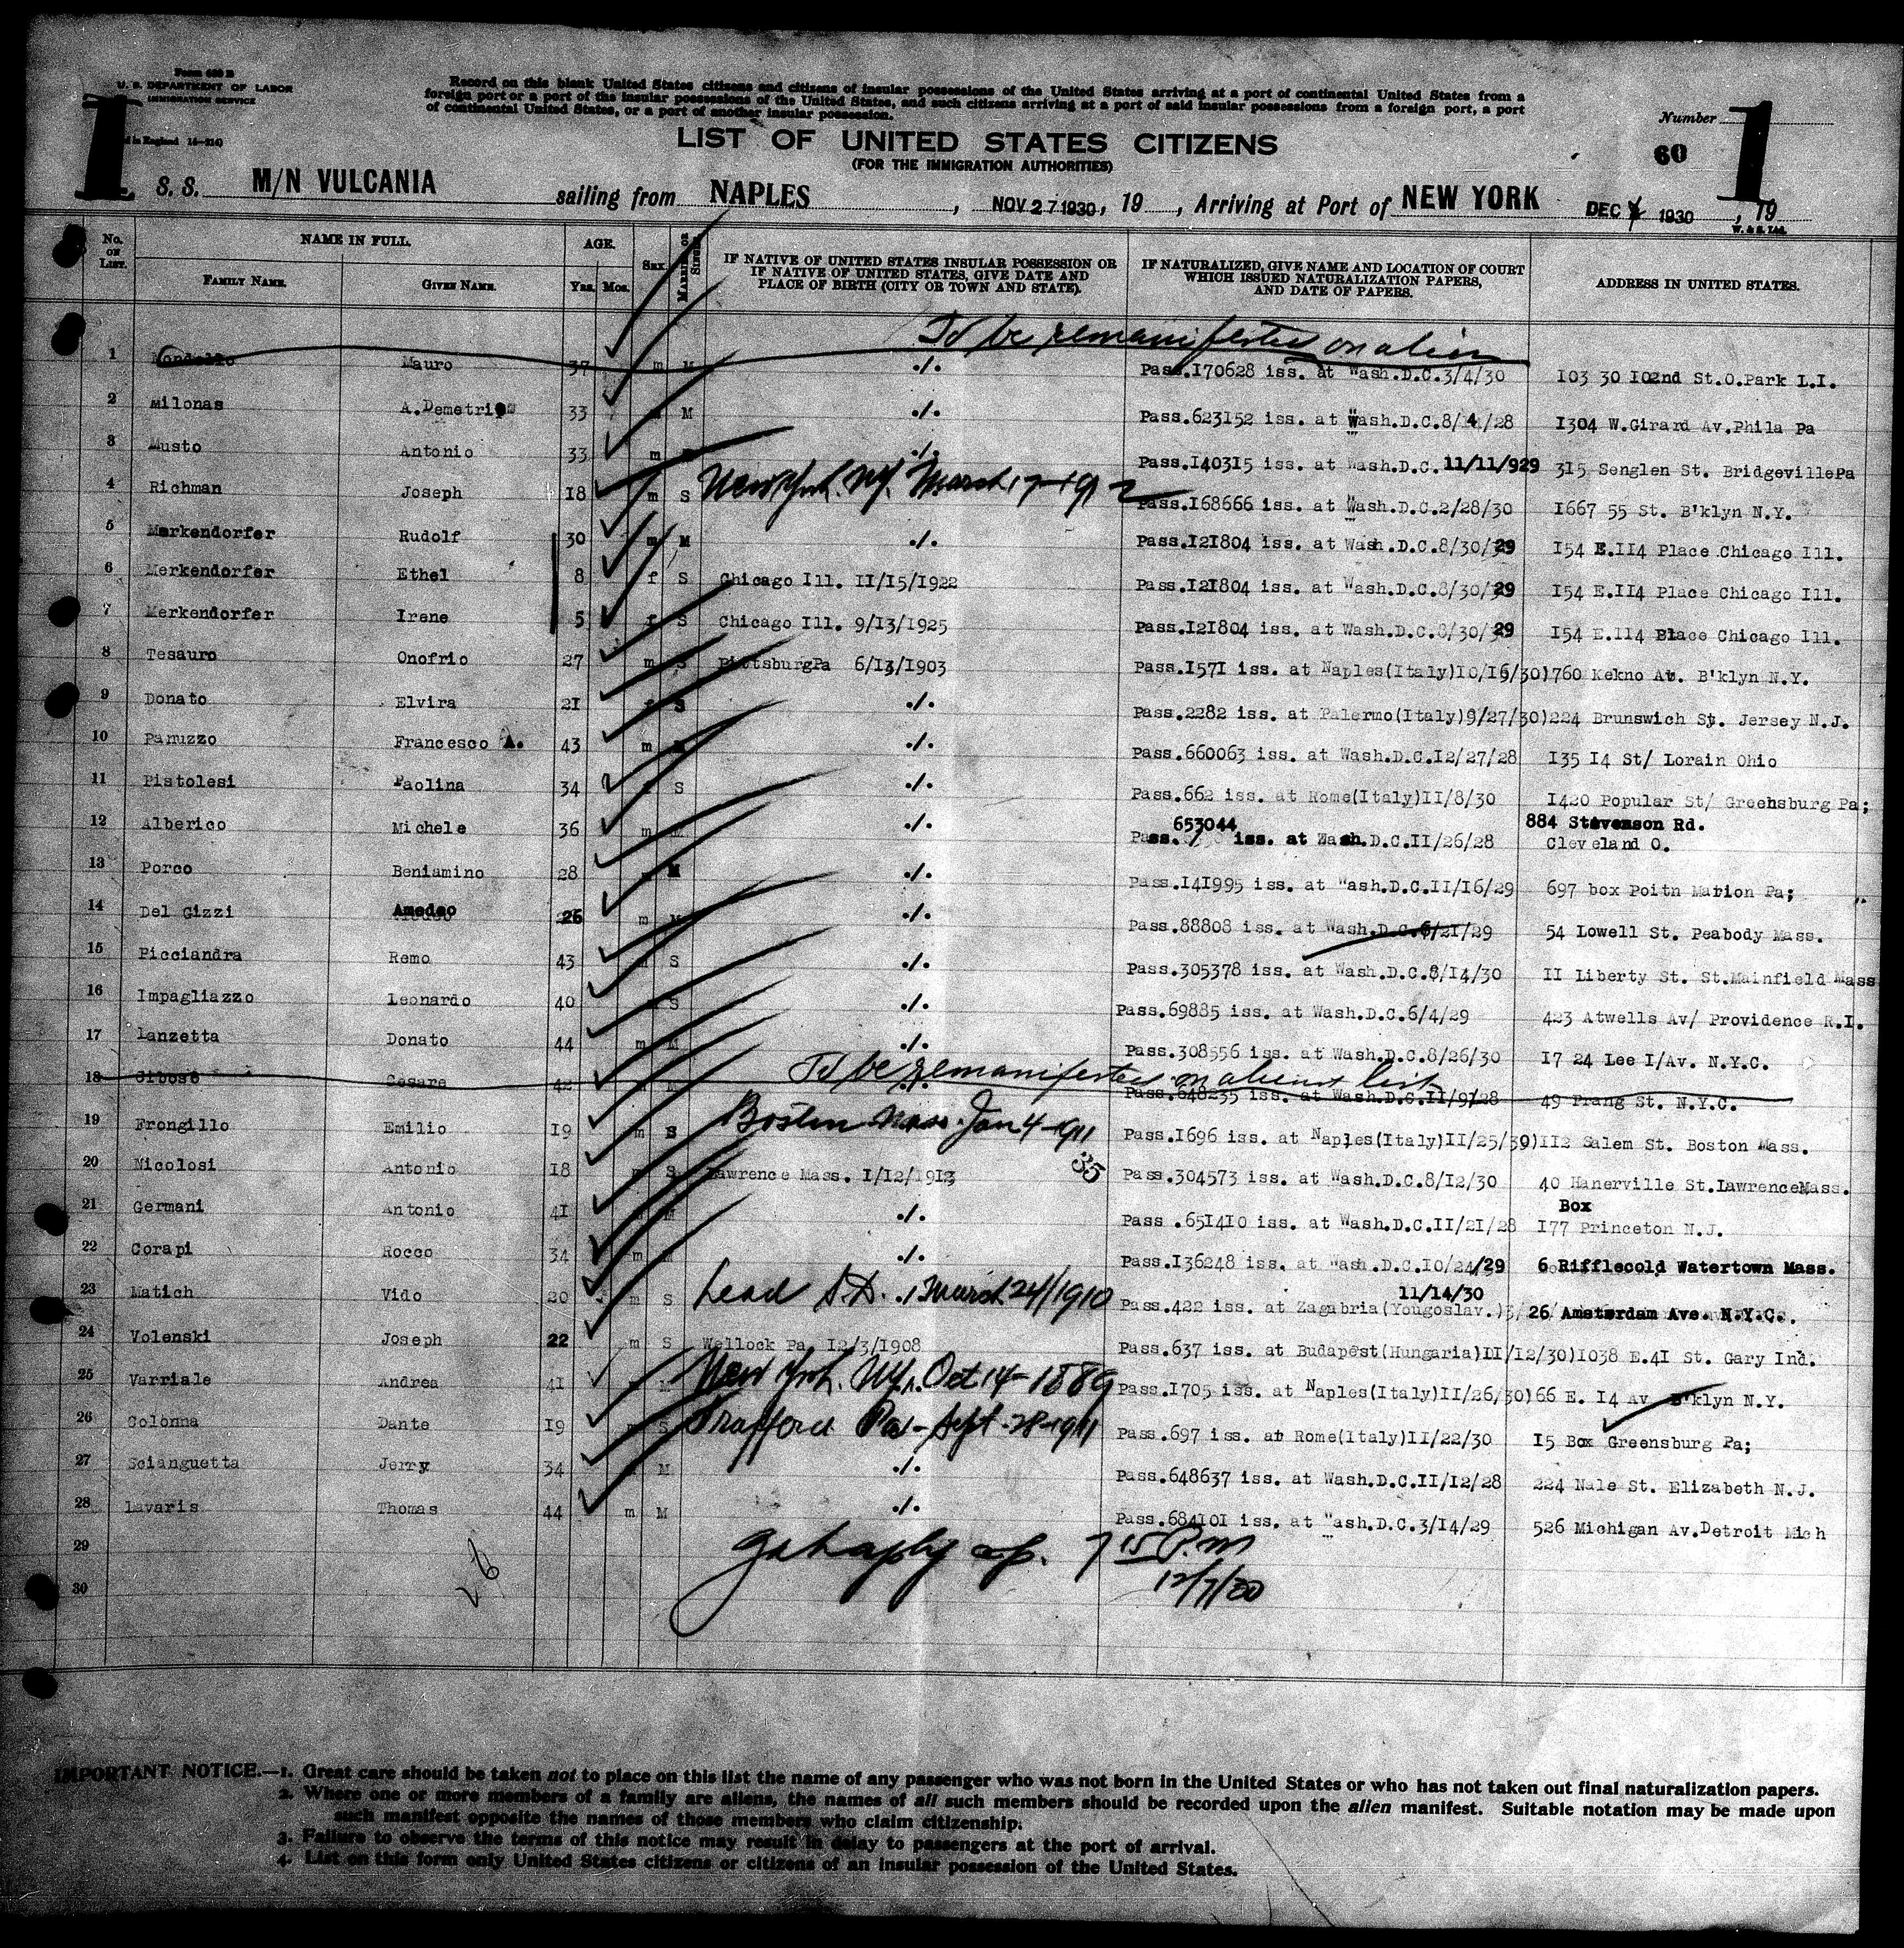 Form 630 B
U. S. DEPARTMENT OF LABOR
IMMIGRATION SERVICE
in England
Record on this blank United States citizens and citizens of insular possessions of the United States arriving at a port of continental United States from a
foreign port or a port of the insular possessions of the United States, and such citizens arriving at a port of said insular possessions from a foreign port, a port
of continental United States, or a port of another insular possession.
LIST OF UNITED STATES CITIZENS
(FOR THE IMMIGRATION AUTHORITIES)
Number
1 60 1
S. S. M/N VULCANIA sailing from NAPLES , NOV 27 1930, 19 , Arriving at Port of NEW YORK DEC 1930 , 19
W. & S. Ltd.
No. ON LIST. NAME IN FULL. FAMILY NAME. GIVEN NAME. AGE. Yrs. Mos. SEX MARRIED OR SINGLE IF NATIVE OF UNITED STATES INSULAR POSSESSION OR IF NATIVE OF UNITED STATES, GIVE DATE AND PLACE OF BIRTH (CITY OR TOWN AND STATE). IF NATURALIZED, GIVE NAME AND LOCATION OF COURT WHICH ISSUED NATURALIZATION PAPERS, AND DATE OF PAPERS. ADDRESS IN UNITED STATES.
To be remanifested on alien
1 Mauro 37 m M ./. Pass.170628 iss. at Wash.D.C.3/4/30 103 30 102nd St.O.Park L.I.
2 Milonas A.Demetrios 33 M ./. Pass.623152 iss. at Wash.D.C.8/4/28 1304 W.Girard Av.Phila Pa
3 Musto Antonio 33 m ./. Pass.140315 iss. at Wash.D.C. 11/11/929 315 Senglen St. BridgevillePa
4 Richman Joseph 18 m S New York. NY. March 17-1912 Pass.168666 iss. at Wash.D.C.2/28/30 1667 55 St. B'klyn N.Y.
5 Merkendorfer Rudolf 30 m M ./. Pass.121804 iss. at Wash.D.C.8/30/29 154 E.114 Place Chicago Ill.
6 Merkendorfer Ethel 8 f S Chicago Ill. 11/15/1922 Pass.121804 iss. at Wash.D.C.8/30/29 154 E.114 Place Chicago Ill.
7 Merkendorfer Irene 5 f S Chicago Ill. 9/13/1925 Pass.121804 iss. at Wash.D.C.8/30/29 154 E.114 Place Chicago Ill.
8 Tesauro Onofrio 27 m S PittsburgPa 6/13/1903 Pass.1571 iss. at Naples(Italy)10/16/30)760 Kekno Av. B'klyn N.Y.
9 Donato Elvira 21 f S ./. Pass.2282 iss. at Palermo(Italy)9/27/30)224 Brunswich St. Jersey N.J.
10 Panuzzo Francesco A. 43 m M ./. Pass.660063 iss. at Wash.D.C.12/27/28 135 14 St/ Lorain Ohio
11 Pistolesi Paolina 34 S ./. Pass.662 iss. at Rome(Italy)11/8/30 1420 Popular St/ Greensburg Pa;
12 Alberico Michele 36 m ./. Pass. 653044 iss. at Wash.D.C.11/26/28 884 Stevenson Rd. Cleveland O.
13 Porco Beniamino 28 M ./. Pass.141995 iss. at Wash.D.C.11/16/29 697 box Poitn Marion Pa;
14 Del Gizzi Amedeo 26 m M ./. Pass.88808 iss. at Wash.D.C.6/21/29 54 Lowell St. Peabody Mass.
15 Picciandra Remo 43 S ./. Pass.305378 iss. at Wash.D.C.8/14/30 11 Liberty St. St.Mainfield Mass
16 Impagliazzo Leonardo 40 S ./. Pass.69885 iss. at Wash.D.C.6/4/29 423 Atwells Av/ Providence R.I.
17 Lanzetta Donato 44 m M ./. Pass.308556 iss. at Wash.D.C.8/26/30 17 24 Lee I/Av. N.Y.C.
To be remanifested on aliens list
18 Cesare 42 Pass.648235 iss. at Wash.D.C.11/9/28 49 Prang St. N.Y.C.
19 Frongillo Emilio 19 m S Boston Mass. Jan 4-1911 Pass.1696 iss. at Naples(Italy)11/25/39)112 Salem St. Boston Mass.
35
20 Nicolosi Antonio 18 S Lawrence Mass. 1/12/1913 Pass.304573 iss. at Wash.D.C.8/12/30 40 Hanerville St.LawrenceMass.
21 Germani Antonio 41 M ./. Pass .651410 iss. at Wash.D.C.11/21/28 Box 177 Princeton N.J.
22 Corapi Rocco 34 m ./. Pass.136248 iss. at Wash.D.C.10/24/29 6 Rifflecold Watertown Mass.
23 Matich Vido 20 m S Lead S.D. March 24/1910 Pass.422 iss. at Zagabria(Yougoslav.) 11/14/30 26 Amsterdam Ave. N.Y.C.
24 Volenski Joseph 22 m S Wellock Pa 12/3/1908 Pass.637 iss. at Budapest(Hungaria)11/12/30)1038 E.41 St. Gary Ind.
25 Varriale Andrea 41 M New York. NY. Oct 14-1889 Pass.1705 iss. at Naples(Italy)11/26/30)66 E. 14 Av B'klyn N.Y.
26 Colonna Dante 19 m S Trafford Pa- Sept-28-1911 Pass.697 iss. at Rome(Italy)11/22/30 15 Box Greensburg Pa;
27 Scianguetta Jerry 34 M ./. Pass.648637 iss. at Wash.D.C.11/12/28 224 Nale St. Elizabeth N.J.
28 Lavaris Thomas 44 m M ./. Pass.684101 iss. at Wash.D.C.3/14/29 526 Michigan Av.Detroit Mich
29 7 15 P.m
30 26 12/7/30
IMPORTANT NOTICE.—1. Great care should be taken not to place on this list the name of any passenger who was not born in the United States or who has not taken out final naturalization papers.
2. Where one or more members of a family are aliens, the names of all such members should be recorded upon the alien manifest. Suitable notation may be made upon
such manifest opposite the names of those members who claim citizenship.
3. Failure to observe the terms of this notice may result in delay to passengers at the port of arrival.
4. List on this form only United States citizens or citizens of an insular possession of the United States.